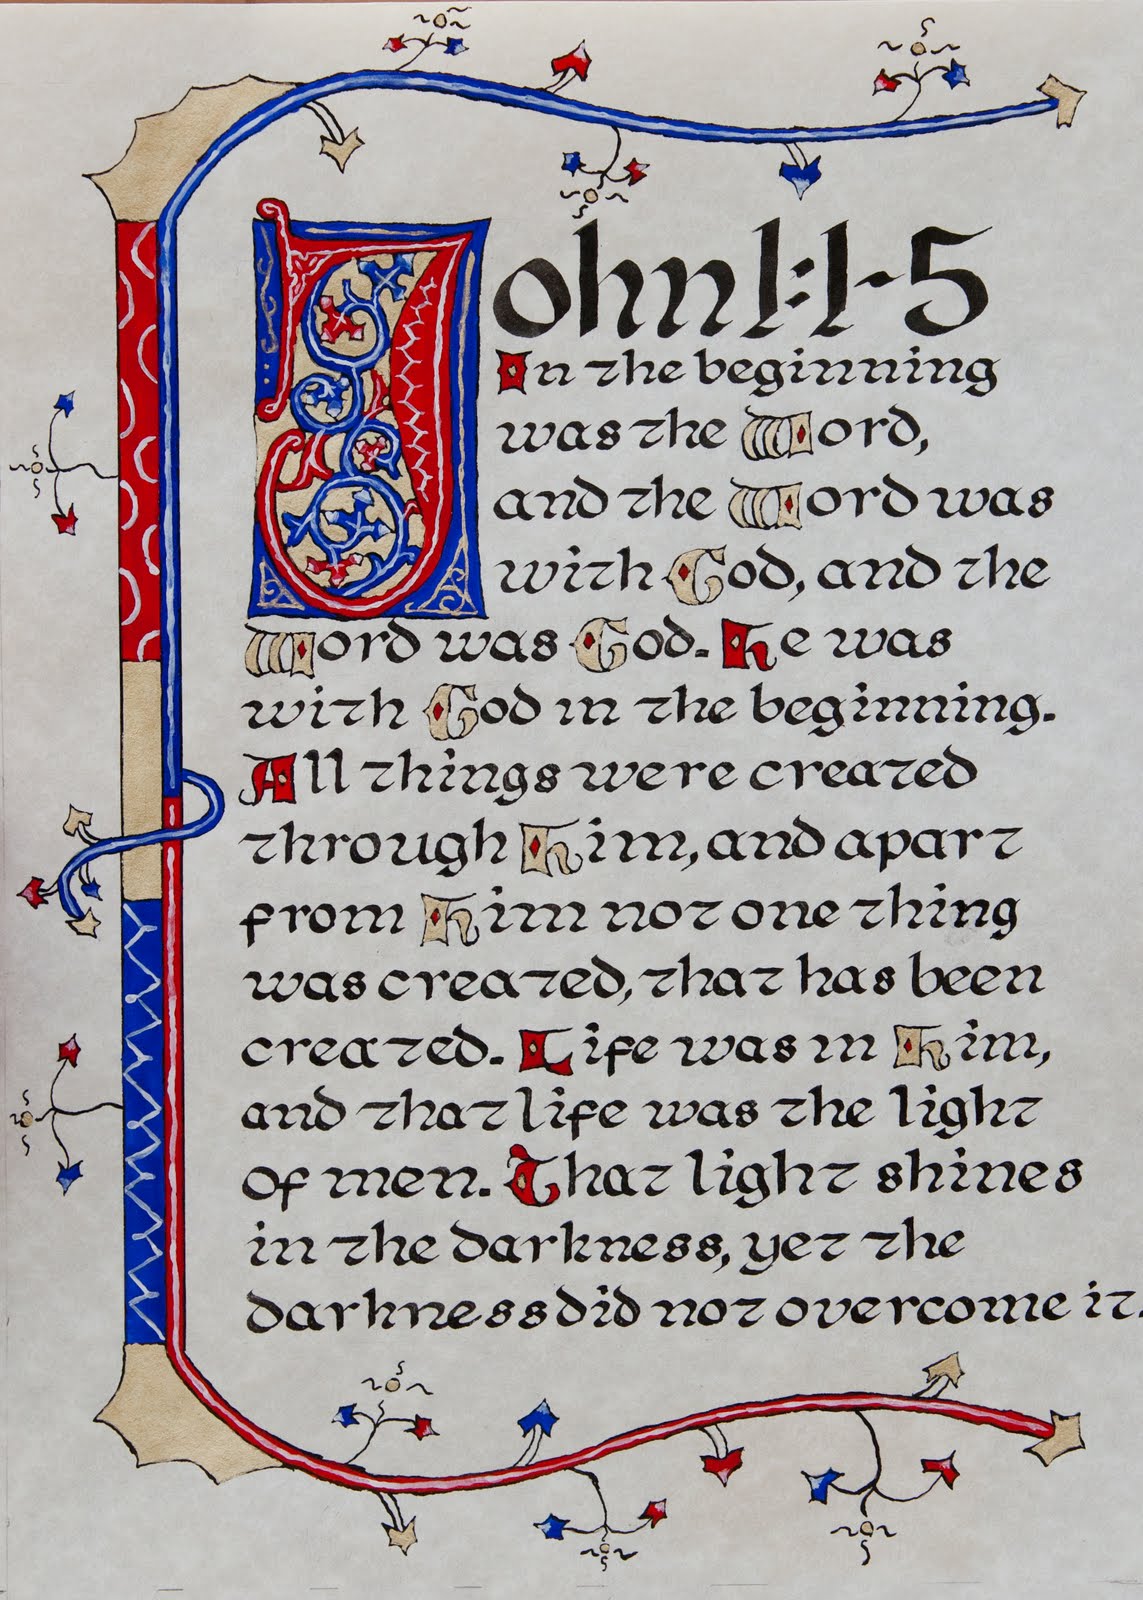 John 1:1-5
In the beginning
was the Word,
and the Word was
with God, and the
Word was God. He was
with God in the beginning.
All things were created
through Him, and apart
from Him not one thing
was created, that has been
created. Life was in Him,
and that life was the light
of men. That light shines
in the darkness, yet the
darkness did not overcome it.